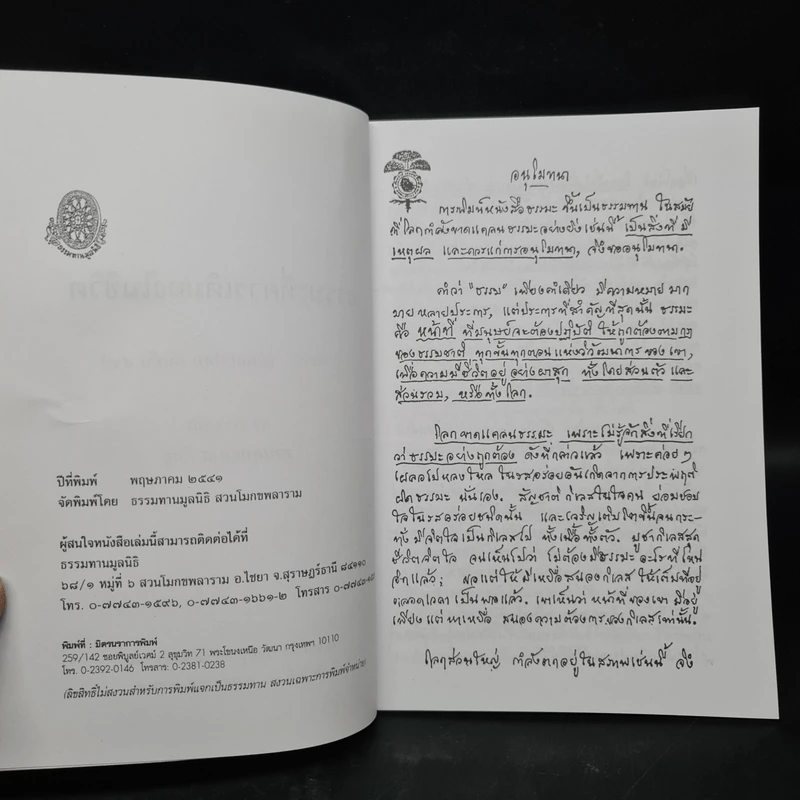 ธรรมทานมูลนิธิ
ปีที่พิมพ์ พฤษภาคม ๒๕๔๑
จัดพิมพ์โดย ธรรมทานมูลนิธิ สวนโมกขพลาราม
ผู้สนใจหนังสือเล่มนี้สามารถติดต่อได้ที่
ธรรมทานมูลนิธิ
๖๘/๑ หมู่ที่ ๖ สวนโมกขพลาราม อ.ไชยา จ.สุราษฎร์ธานี ๘๔๑๑๐
โทร. ๐-๗๗๔๓-๑๕๙๖, ๐-๗๗๔๓-๑๖๖๑-๒ โทรสาร ๐-๗๗๔๓-
พิมพ์ที่ : มิตรนราการพิมพ์
259/142 ซอยพิบูลย์เวศม์ 2 สุขุมวิท 71 พระโขนงเหนือ วัฒนา กรุงเทพฯ 10110
โทร. 0-2392-0146 โทรสาร: 0-2381-0238
(ลิขสิทธิ์ไม่สงวนสำหรับการพิมพ์แจกเป็นธรรมทาน สงวนเฉพาะการพิมพ์จำหน่าย)
อนุโมทนา
การพิมพ์หนังสือธรรมะ ขึ้นเป็นธรรมทาน ในสมัย
ที่โลกกำลังขาดแคลนธรรมะอย่างยิ่งเช่นนี้ เป็นสิ่งที่มี
เหตุผล และควรแก่การอนุโมทนา, จึงขออนุโมทนา.
คำว่า "ธรรม" เพียงคำเดียว มีความหมายมาก
มายหลายประการ, แต่ประการที่สำคัญที่สุดนั้น ธรรมะ
คือ หน้าที่ ที่มนุษย์จะต้องปฏิบัติ ให้ถูกต้องตามกฎ
ของธรรมชาติ ทุกขั้นทุกตอนแห่งวิวัฒนาการของเขา,
เพื่อความมีชีวิตอยู่อย่างผาสุก ทั้งโดยส่วนตัว และ
ส่วนรวม, หรือทั้งโลก.
โลกขาดแคลนธรรมะ เพราะไม่รู้จักสิ่งที่เรียก
ว่าธรรมะอย่างถูกต้อง ดังที่กล่าวแล้ว เพราะค่อยๆ
เผลอไปหลงใหล ในรสอร่อยอันเกิดจากการประพฤติ
ผิดธรรมะ นั่นเอง. สัญชาตกิเลสในใจคน ย่อมชอบ
ใจในรสอร่อยชนิดนั้น และเจริญเติบโตขึ้นจนกระ-
ทั่งมีจิตใจเป็นกิเลสไป ทั้งเนื้อทั้งตัว. บูชากิเลสสุด
ชีวิตจิตใจ จนเห็นไปว่า ไม่ต้องมีธรรมะ อะไรที่ไหน
อีกแล้ว; ขอแต่ให้มีเหยื่อสนองกิเลส ให้เต็มที่อยู่
ตลอดเวลา เป็นพอแล้ว. เขาเห็นว่า หน้าที่ของเขา มีอยู่
เพียงแต่ หาเหยื่อ สนองความต้องการของกิเลสเท่านั้น.
โลกส่วนใหญ่ กำลังตกอยู่ในสภาพเช่นนี้ จึง